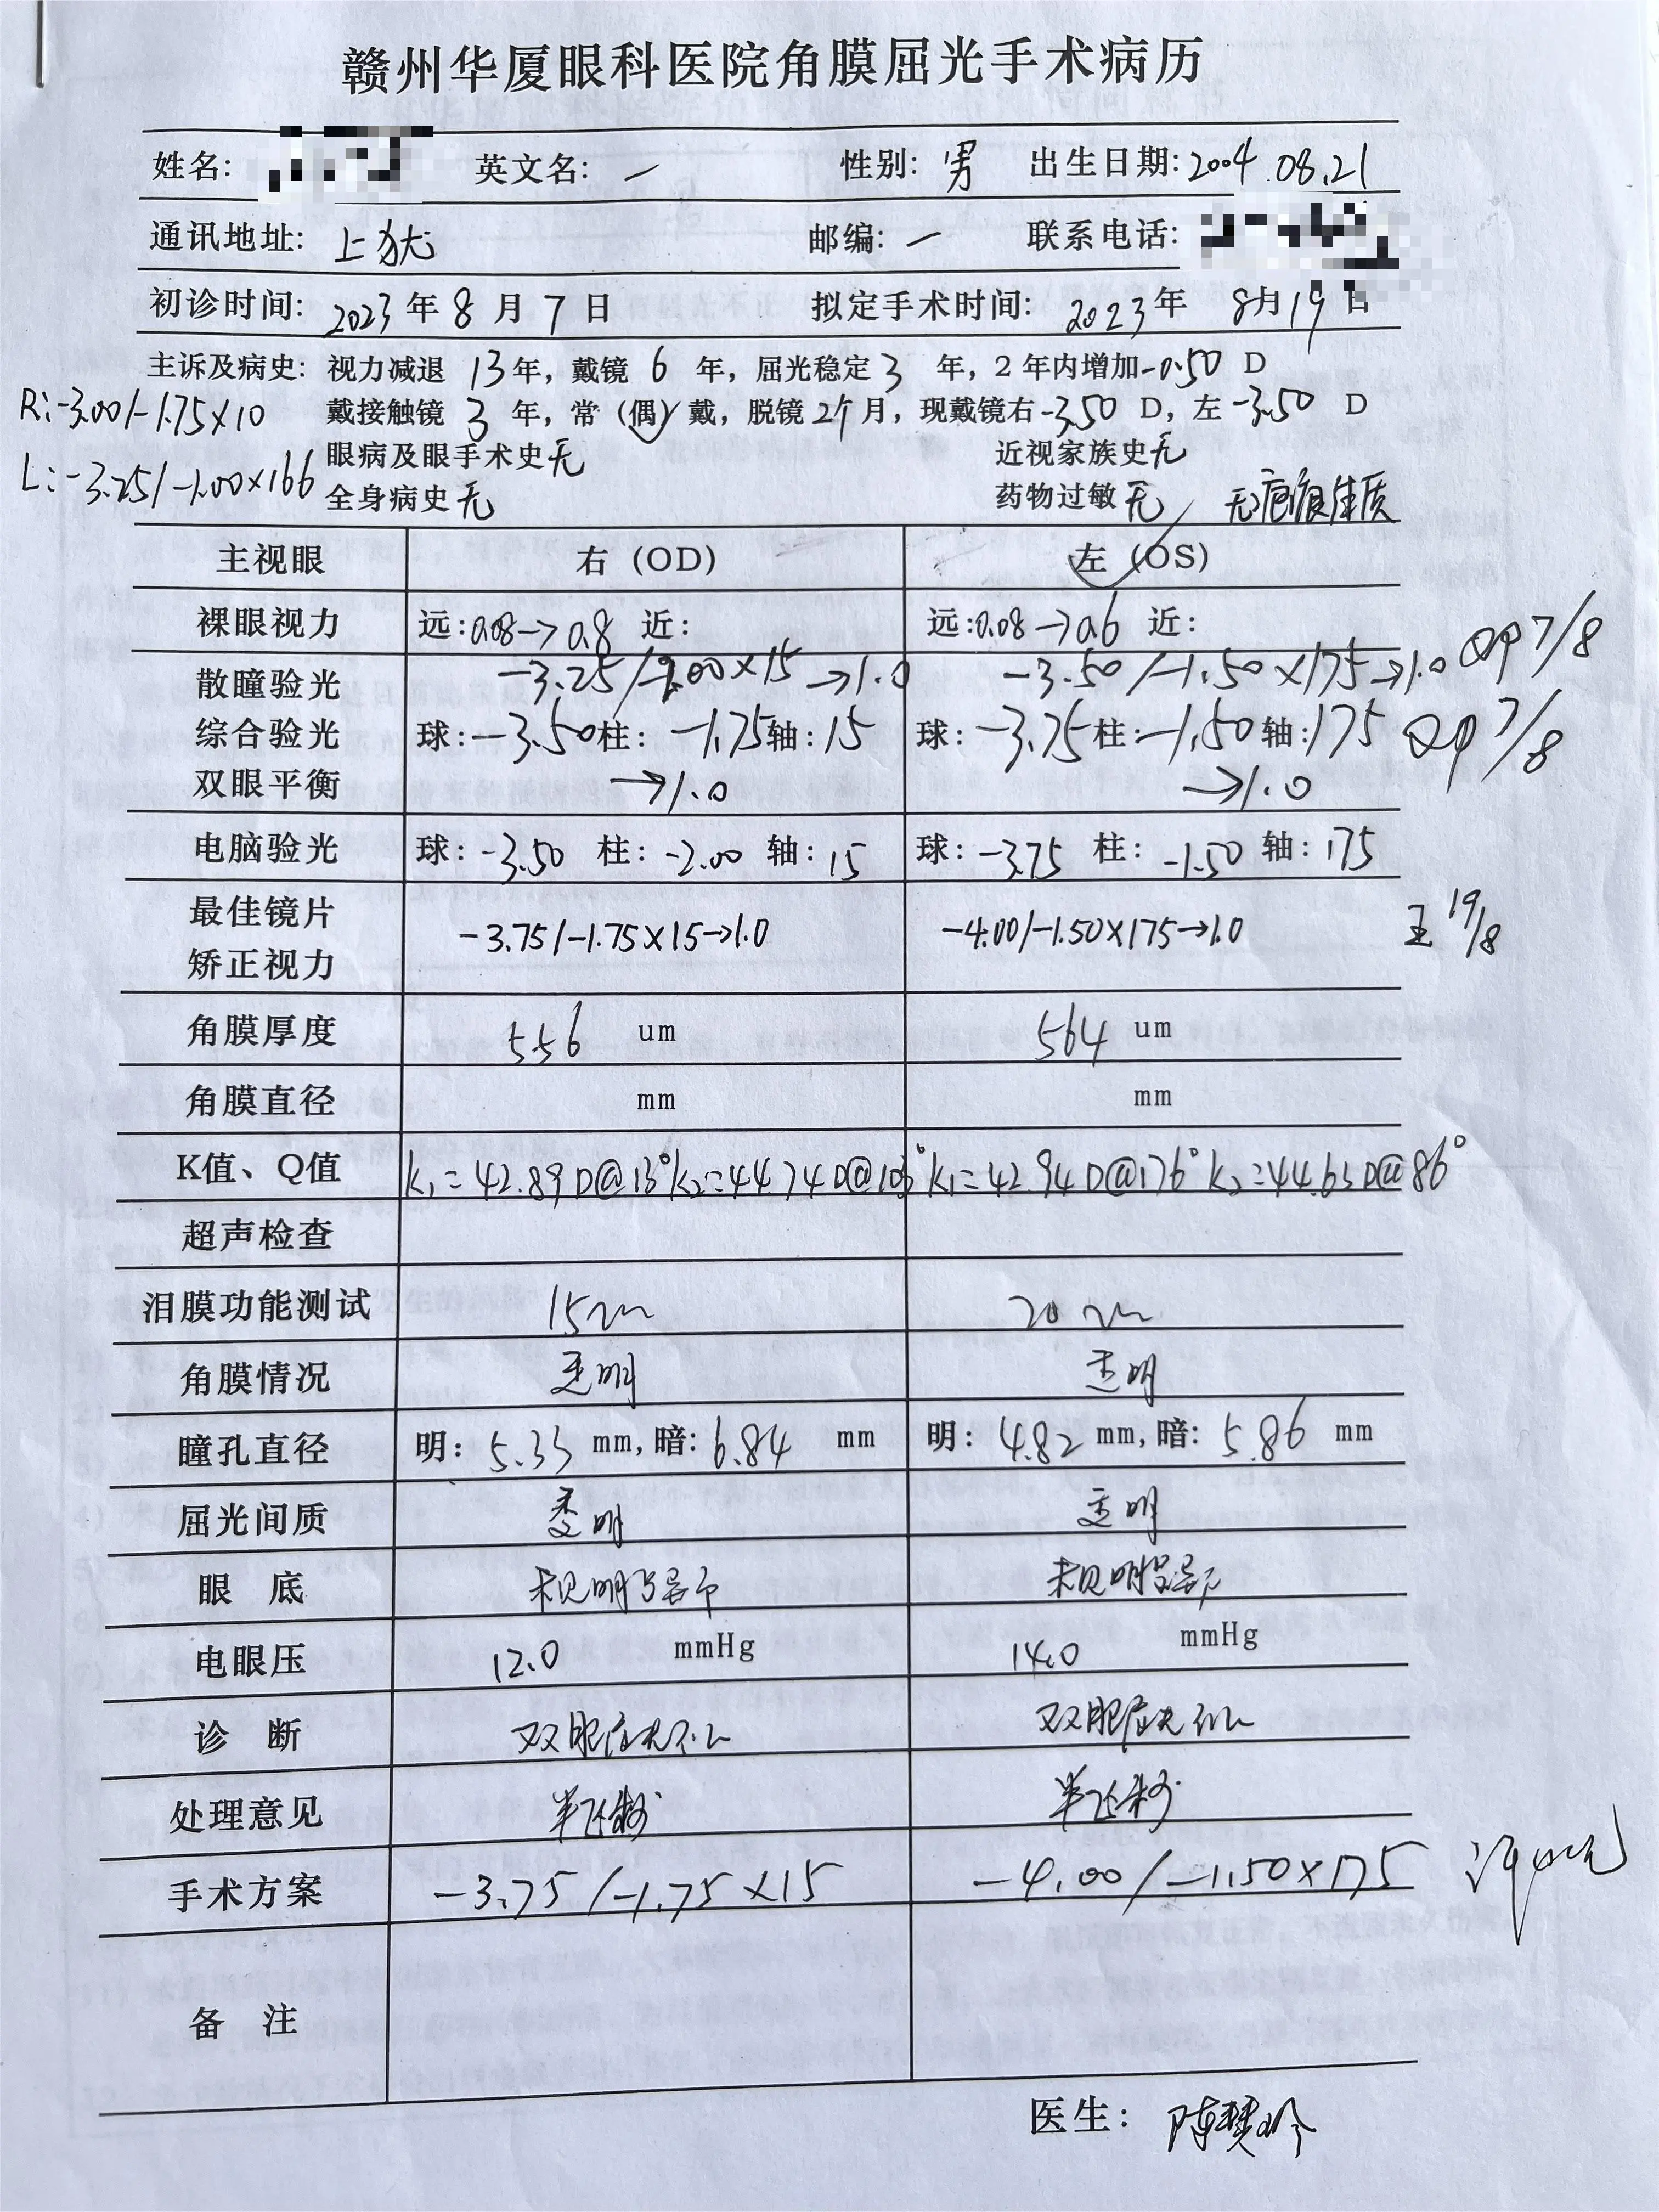 赣州华厦眼科医院角膜屈光手术病历
姓名: 英文名: — 性别: 男 出生日期: 2004.08.21
通讯地址: 上犹 邮编: — 联系电话:
初诊时间: 2023年 8 月 7 日 拟定手术时间: 2023年 8月19日
主诉及病史: 视力减退 13年，戴镜 6 年，屈光稳定 3 年，2 年内增加-0.50 D
R:-3.00/-1.75×10 戴接触镜 3 年，常（偶）戴，脱镜 2个月，现戴镜右-3.50 D，左-3.50 D
眼病及眼手术史无 近视家族史无
L:-3.25/-1.00×166 全身病史无 药物过敏无 无疤痕体质
主视眼 右 (OD) 左 (OS)
裸眼视力 远:0.08→0.8 近: 远:0.08→0.6 近:
散瞳验光 -3.25/-2.00×15→1.0 -3.50/-1.50×175→1.0 7/8
综合验光 球:-3.50柱:-1.75轴:15 球:-3.75柱:-1.50轴:175 7/8
双眼平衡 →1.0 →1.0
电脑验光 球:-3.50 柱:-2.00 轴:15 球:-3.75 柱:-1.50 轴:175
最佳镜片
矫正视力 -3.75/-1.75×15→1.0 -4.00/-1.50×175→1.0 王 19/8
角膜厚度 556 um 564 um
角膜直径 mm mm
K值、Q值 K₁=42.89D@13° K₂=44.74D@103° K₁=42.94D@176° K₂=44.65D@86°
超声检查
泪膜功能测试 15mm 20mm
角膜情况 透明 透明
瞳孔直径 明: 5.33 mm,暗: 6.84 mm 明: 4.82 mm,暗: 5.86 mm
屈光间质 透明 透明
眼 底 未见明显异常 未见明显异常
电眼压 12.0 mmHg 14.0 mmHg
诊 断 双眼屈光不正 双眼屈光不正
处理意见 半飞秒 半飞秒
手术方案 -3.75/-1.75×15 -4.00/-1.50×175
备 注
医生: